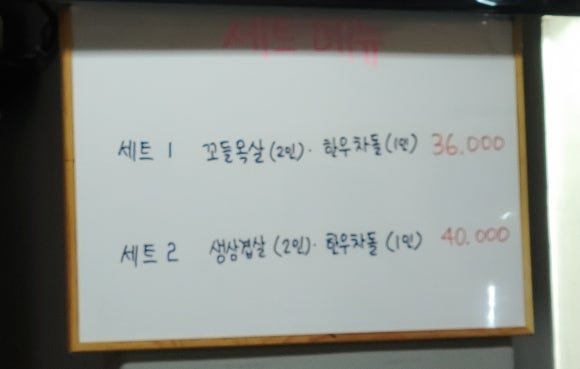 세트 메뉴
세트 1 꼬들목살(2인)· 한우차돌(1인) 36.000
세트 2 생삼겹살(2인)· 한우차돌(1인) 40.000